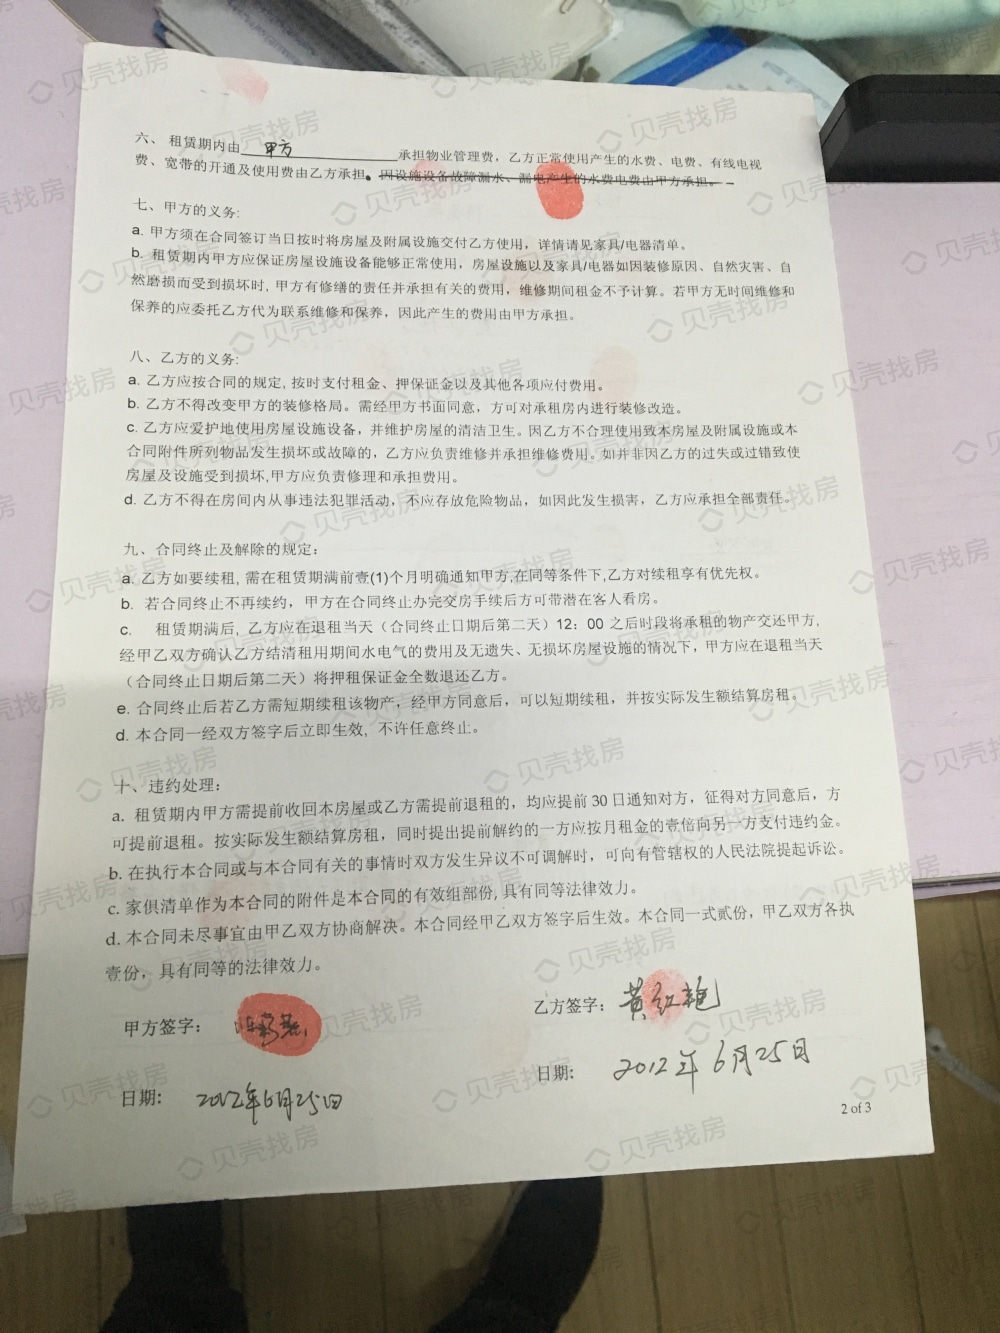 六、 租赁期内由 甲方 承担物业管理费，乙方正常使用产生的水费、电费、有线电视
费、宽带的开通及使用费由乙方承担。因设施设备故障漏水、漏电产生的水费电费由甲方承担。
七、甲方的义务:
a. 甲方须在合同签订当日按时将房屋及附属设施交付乙方使用，详情请见家具/电器清单。
b. 租赁期内甲方应保证房屋设施设备能够正常使用，房屋设施以及家具/电器如因装修原因、自然灾害、自
然磨损而受到损坏时, 甲方有修缮的责任并承担有关的费用，维修期间租金不予计算。若甲方无时间维修和
保养的应委托乙方代为联系维修和保养，因此产生的费用由甲方承担。
八、乙方的义务:
a. 乙方应按合同的规定, 按时支付租金、押保证金以及其他各项应付费用。
b. 乙方不得改变甲方的装修格局。需经甲方书面同意，方可对承租房内进行装修改造。
c. 乙方应爱护地使用房屋设施设备，并维护房屋的清洁卫生。因乙方不合理使用致本房屋及附属设施或本
合同附件所列物品发生损坏或故障的，乙方应负责维修并承担维修费用。如并非因乙方的过失或过错致使
房屋及设施受到损坏,甲方应负责修理和承担费用。
d. 乙方不得在房间内从事违法犯罪活动，不应存放危险物品，如因此发生损害，乙方应承担全部责任。
九、合同终止及解除的规定：
a. 乙方如要续租, 需在租赁期满前壹(1)个月明确通知甲方,在同等条件下,乙方对续租享有优先权。
b. 若合同终止不再续约，甲方在合同终止办完交房手续后方可带潜在客人看房。
c. 租赁期满后, 乙方应在退租当天（合同终止日期后第二天）12：00 之后时段将承租的物产交还甲方,
经甲乙双方确认乙方结清租用期间水电气的费用及无遗失、无损坏房屋设施的情况下，甲方应在退租当天
（合同终止日期后第二天）将押租保证金全数退还乙方。
e. 合同终止后若乙方需短期续租该物产，经甲方同意后，可以短期续租，并按实际发生额结算房租。
d. 本合同一经双方签字后立即生效, 不许任意终止。
十、违约处理：
a. 租赁期内甲方需提前收回本房屋或乙方需提前退租的，均应提前 30 日通知对方，征得对方同意后，方
可提前退租。按实际发生额结算房租，同时提出提前解约的一方应按月租金的壹倍向另一方支付违约金。
b. 在执行本合同或与本合同有关的事情时双方发生异议不可调解时，可向有管辖权的人民法院提起诉讼。
c. 家俱清单作为本合同的附件是本合同的有效组部份, 具有同等法律效力。
d. 本合同未尽事宜由甲乙双方协商解决。本合同经甲乙双方签字后生效。本合同一式贰份，甲乙双方各执
壹份，具有同等的法律效力。
甲方签字：
乙方签字： 黄红艳
日期: 2012年6月25日
日期: 2012年6月25日
2 of 3
贝壳找房